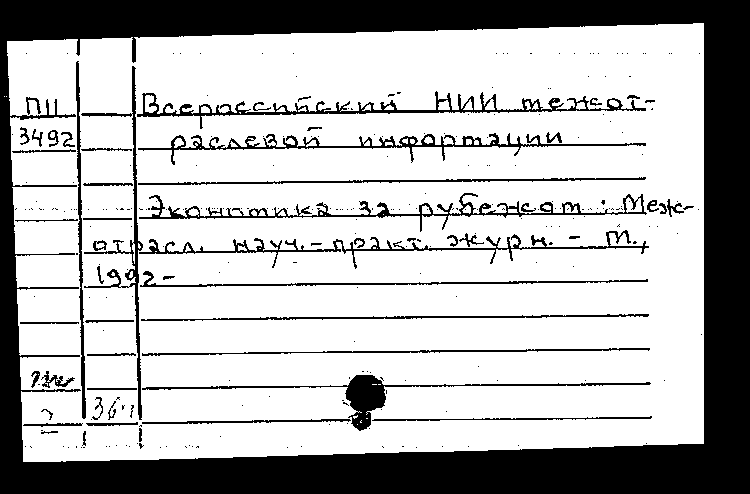 ПII Всероссийский НИИ межот-
3492 раслевой информации
Экономика за рубежом : Меж-
отрасл. науч.-практ. журн. - М.,
1992-
2